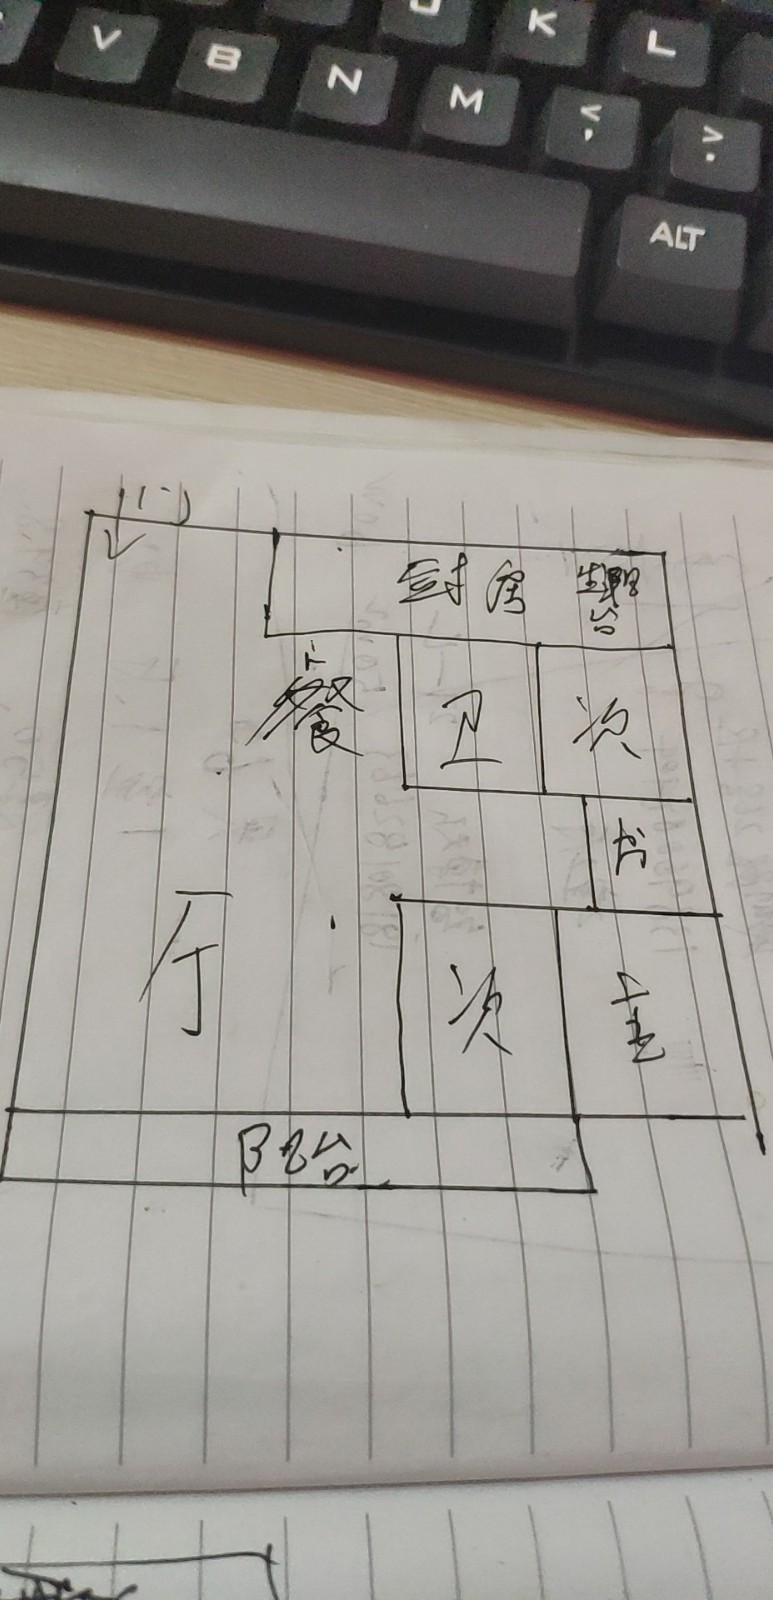 V B N M < , > .
J K L
ALT
门
厨房 生理台
餐厅
卫
次
书
厅
次
主
阳台